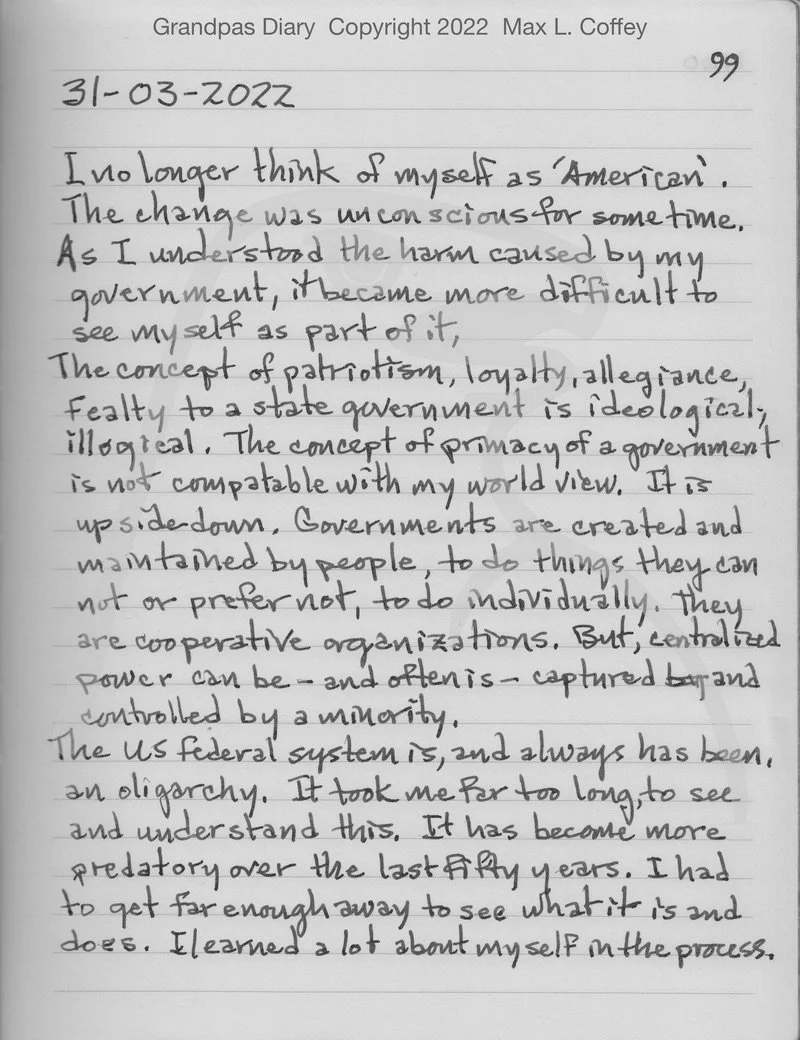 Grandpas Diary Copyright 2022 Max L. Coffey
99
31-03-2022
I no longer think of myself as 'American'.
The change was unconscious for some time.
As I understood the harm caused by my
government, it became more difficult to
see myself as part of it,
The concept of patriotism, loyalty, allegiance,
fealty to a state government is ideological,
illogical. The concept of primacy of a government
is not compatable with my world view. It is
upside down. Governments are created and
maintained by people, to do things they can
not or prefer not, to do individually. They
are cooperative organizations. But, centralized
power can be - and often is - captured by and
controlled by a minority.
The US federal system is, and always has been,
an oligarchy. It took me far too long, to see
and understand this. It has become more
predatory over the last fifty years. I had
to get far enough away to see what it is and
does. I learned a lot about myself in the process.